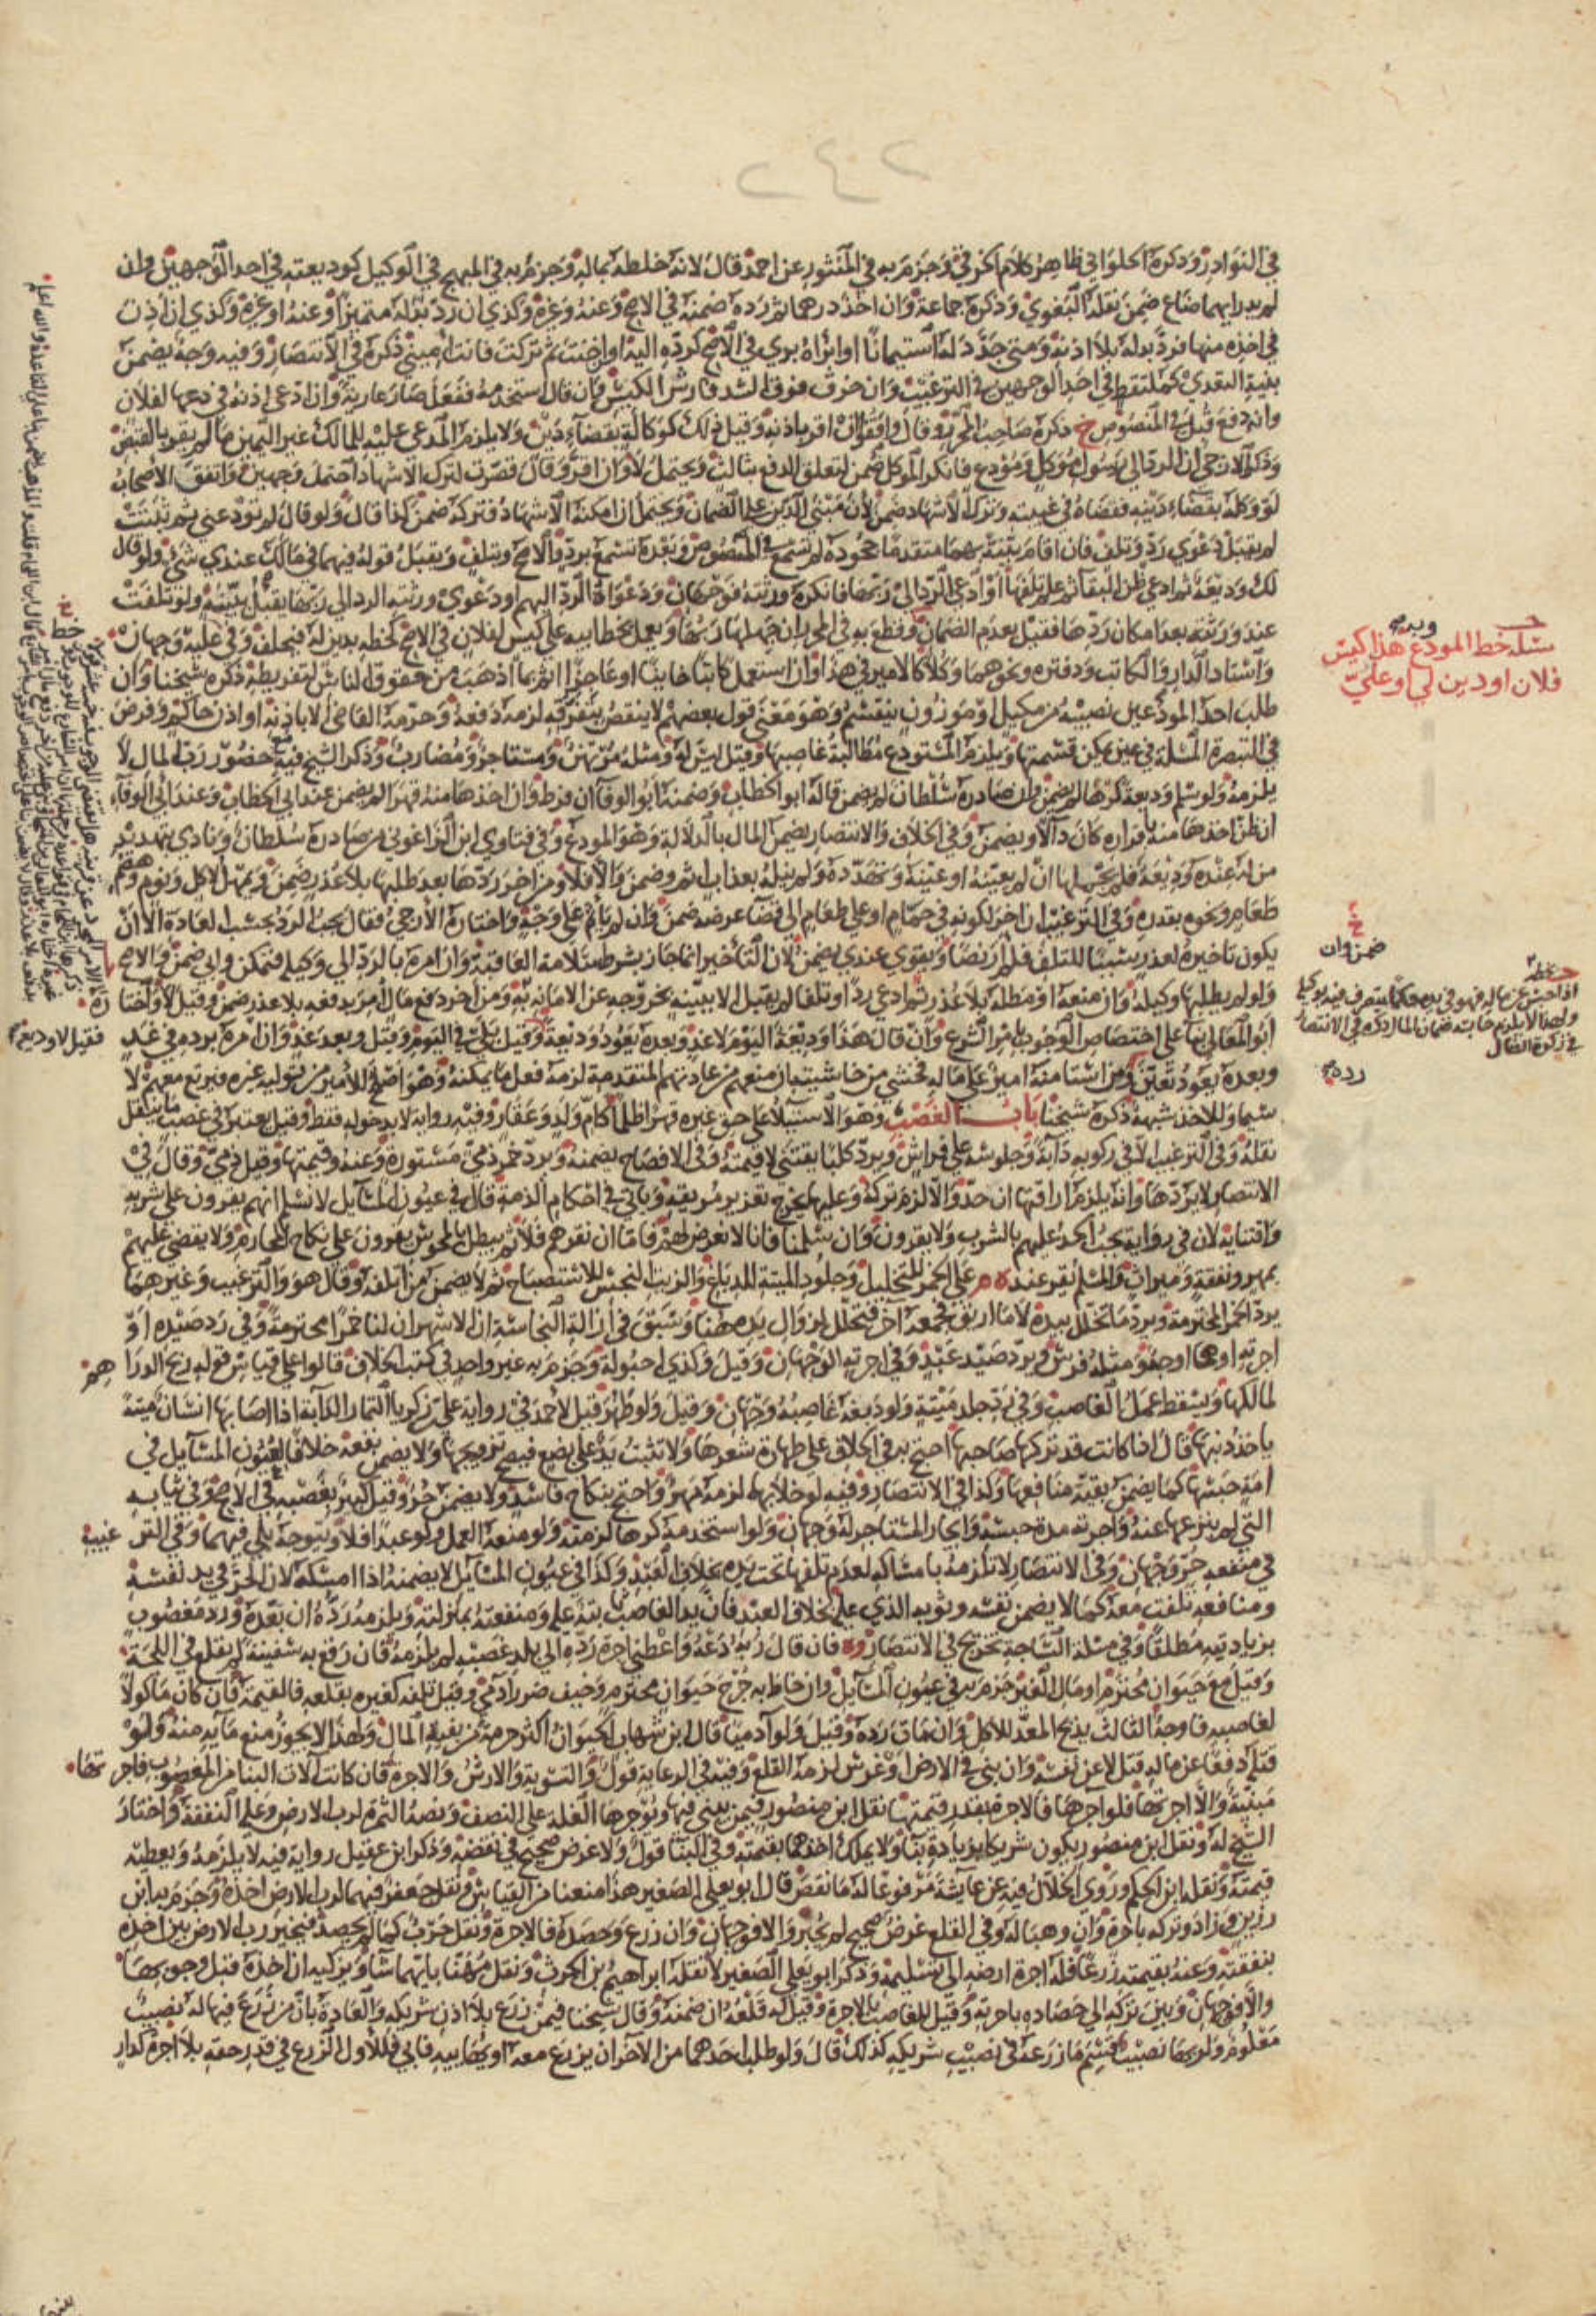 ٢٤٠٢
في النوادر وذكره الحلواني ظاهر كلام الخرقي وجزم به في المنثور عن احمد قال لانه خلطه بماله وجزم به في المبهج في الوكيل كوديعته في احد الوجهين وان
لم يدر ايهما ضاع ضمن نقله البغوي وذكره جماعة وان اخذ درهما ثم رده ضمنه في الاصح وعنه وغيره وكذي ان رد بدله متميزا وعنه او غيره وكذي ان اذن
في اخذه منها فرد بدله بلا اذنه ومتى جدد له استيمانا او ابراه بري في الاصح كرده اليه او ان خنت ثم تركت فانت اميني ذكره في الانتصار وفيه وجه يضمن
بنية التعدي كملتقط في احد الوجهين في الترغيب وان خرق فوق الشد فارش الكيس فان قال استخدمه ففعل صار عارية وان ادعى اذنه في دفعها لفلان
وانه دفع قبل في المنصوص خ ذكره صاحب المحرر وقال وافقوا ان اقر باذنه وقيل ذلك كوكالة بقضاء دين ولا يلزم المدعى عليه للمالك غير اليمين ما لم يقر بالقبض
وذكر الازجي ان الرد الى رسول موكل ومودع فانكر الموكل ضمن لتعلق الدفع بثالث ويحتمل لا وان اقر وقال قصرت لترك الاشهاد احتمل وجهين واتفق الاصحاب
لو وكله بقضاء دينه فقضاه في غيبته وترك الاشهاد ضمن لان مبنى الدين على الضمان ويحتمل ان امكنه الاشهاد فتركه ضمن كذا قال ولو قال لم تودعني ثم ثبتت
لم يقبل دعوى رد وتلف فان اقام بينة بهما متقدما جحوده لم تسمع في المنصوص وبعده تسمع برد والاصح وتلف ويقبل قوله فيهما في مالك عندي شي ولو قال
لك وديعة ثم ادعى ظن البقا ثم علم تلفها او ادعى الرد الى ربها فانكره ورثته فوجهان ودعواه الرد اليهم او دعوى ورثته الرد الى ربها يقبل ببينة ولو تلفت
عند ورثته بعد امكان ردها فقيل بعدم الضمان وقطع به في المحرر ان جهلها ربها ويعمل بخط ابيه على كيس لفلان في الاصح كخطه بدين له فيحلف وفي عليه وجهان
واستاد الدار والكاتب ودفتره ونحوهما وكلا كالامير في هذا وان استعمل كاتبا خاينا او عاجزا اثم بما اذهب من حقوق الناس لتفريطه ذكره شيخنا وان
طلب احد المودعين نصيبه من مكيل او موزون ينقسم وهو معنى قول بعضهم لا ينقص بتفرقه لزمه دفعه وحرمه القاضي الا باذنه او اذن حاكم وفرض
في التبصرة المسلة في عين يمكن قسمتها ويلزم المستودع مطالبة غاصبها وقيل ليس له ومثله مرتهن ومستاجر ومضارب وذكر الشيخ فيه حضور رب المال لا
يلزمه ولو سلم وديعة كرها لم يضمن وان صادره سلطان لم يضمن قاله ابو الخطاب وضمنه ابو الوفا ان فرط وان اخذها منه قهرا لم يضمن عند ابي الخطاب وعند ابي الوفاء
ان ظن اخذها منه باقراره كان دالا ويضمن وفي الخلاف والانتصار يضمن المال بالدلالة وهو المودع وفي فتاوى ابن الزاغوني من صادره سلطان ونادى بتهديد
من له عنده وديعة فلم يحملها ان لم يعينه او عينه وتهدده ولم ينله بعذاب اثم وضمن والا فلا ومن اخر ردها بعد طلبها بلا عذر ضمن ويمهل لاكل ونوم وهضم
طعام ونحوه بقدره وفي الترغيب ان اخر لكونه في حمام او على طعام الى قضاء غرضه ضمن وان لم ياثم على وجه واختاره الازجي فقال يجب الرد بحسب العادة الا ان
يكون تاخيره لعذر يسببا للتلف فلم ار نصا ويقوى عندي يضمن لان التاخير انما جاز بشرط سلامة العاقبة وان امره بالرد الى وكيله فتمكن وابى ضمن والاصح
ولو لم يطلبها وكيله وان منعه او مطله بلا عذر ثم ادعى ردا او تلفا لم يقبل الا ببينة لخروجه عن الامانة ومن اخر دفع مال امر بدفعه بلا عذر ضمن وقيل لا واختاره
ابو المعالي بناء على اختصاص الوجوب بامر الشرع وان قال هذا وديعة اليوم لا غد وبعده يعود وديعة فقيل لا وديعة وقيل بلى في اليوم وقيل وبعد غد وان امره برده في غد
وبعده يعود تعين رده ومن استامنه امير على ماله فخشي من حاشيته ان منعهم من عادتهم المتقدمة لزمه فعل ما يمكنه وهو اصلح للامير من توليه غيره فيرتع معهم لا
سيما وللاخذ شبهة ذكره شيخنا باب الغصب وهو الاستيلا على حق غيره قهرا ظلما كام ولد وعقار وفيه رواية لا بدخوله فقط وقيل يعتبر في غصب ما ينقل
نقله وفي الترغيب الا في ركوبه دابة وجلوسه على فراش ويرد كلبا يقتنى لا قيمته وفي الافصاح يضمنه ويرد خمر ذمي مستورة وعنه وقيمتها وقيل ذمي وقال في
الانتصار لا يردها وانه يلزم اراقتها ان حد والا لزم تركه وعليها يخرج تعزير مريقه وياتي في احكام الذمة قال في عيون المسايل لا نسلم انهم يقرون على شربه
واقتنايه لان في رواية يجب الحد عليهم بالشرب ولا يقرون وان سلمنا فانا لا نعرض لهم فاما ان نقرهم فلا ثم يبطل بالمجوس يقرون على نكاح المحارم ولا يقضى عليهم
بمهر ونفقة وميراث والمسلم يقر عنده م على الخمر للتخليل وجلود الميتة للدباغ والزيت النجس للاستصباح ثم لا يضمن من اتلفه وقال هو والترغيب وغيرهما
يرد الخمر المحترمة ويرد ما تخلل بيده لا ما اريق فجمعه آخر فتخلل لزوال يده هنا وسبق في ازالة النجاسة ان الاشهر ان لنا خمرا محترمة وفي رد صيده او
اجرته او هما اوجه ومثله فرس ويرد صيد عبد وفي اجرته الوجهان وقيل وكذي احبولة وجزم به غير واحد في كتب الخلاف قالوا على قياس قوله ربح الدراهم
لمالكها ويسقط عمل الغاصب وفي رد جلد ميتة ولو دبغه غاصبه وجهان وقيل ولو طهر وقيل لاحمد في رواية علي بن زكريا التمار الدابة اذا اصابها انسان ميتة
ياخذ ذنبها قال اذا كانت قد تركها صاحبها احتج به في الخلاف على طهارة شعرها ولا تثبت يد على بضع فيصح تزويجها ولا يضمن نفعه خلافا لعيون المسايل في
امة حبسها كما يضمن بقية منافعها وكذا في الانتصار وفيه لو خلا بها لزمه مهر واحتج بنكاح فاسد ولا يضمن حر وقيل كبير بغصبه في الاصح وفي ثيابه
التي لم ينزعها عنه واجرته مدة حبسه وايجار المستاجر له وجهان ولو استخدمه كرها لزمته ولو منعه العمل ولو عبدا فلا ويتوجه بلى فيهما وفي الترغيب
في منفعه حر وجهان وفي الانتصار لا تلزمه بامساكه لعدم تلفها تحت يده بخلاف العبد وكذا في عيون المسايل لا يضمنه اذا امسكه لان الحر في يد نفسه
ومنافعه تلفت معه كما لا يضمن نفسه وثوبه الذي عليه بخلاف العبد فان يد الغاصب ثابتة عليه ومنفعته بمنزلته ويلزمه رده ان بقدره ورد مغصوب
بزيادته مطلقا وفي مسلة الساجة تخريج في الانتصار وه فان قال ربه دعه واعطني اجرة رده الى بلد غصبه لم يلزمه فان رفع به سفينة لم يقلع في اللجة
وقيل مع حيوان محترم او مال الغير جزم به في عيون المسايل وان خاط به جرح حيوان محترم وخيف ضرر آدمي وقيل تلفه كغيره بقلعه فالقيمة فان كان ماكولا
لغاصبه فاوجه الثالث يذبح المعد للاكل وان مات رده وقيل ولو آدميا قال ابن شهاب الحيوان اكثر حرمة من بقية المال ولهذا لا يجوز منع مايه منه ولو
قتله دفعا عن ماله قتل لا عن نفسه وان بنى في الارض او غرس لزمه القلع وفيه في الرعاية قول والتسوية والارش والاجرة فان كانت آلات البنا من المغصوب فاجرتها
مبنية والا اجرتها فلو اجرها فالاجرة بقدر قيمتها نقل ابن منصور فيمن يبني فيها ويؤجرها الغلة على النصف ونصه الثمرة لرب الارض وعليه النفقة واختار
الشيخ له ونقل ابن منصور يكون شريكا بزيادة بنا ولا يملك اخذهما بقيمته وفي البنا قول ولا غرض صحيح في نقضه وذكر ابن عقيل رواية فيه لا يلزمه ويعطيه
قيمته ونقله ابن الحكم وروى الخلال فيه عن عايشة مرفوعا له ما نقص قال ابو يعلى الصغير هذا منعنا من القياس ونقل جعفر فيهما لرب الارض اخذه وجزم به ابن
رزين وزاد وتركه باجرة وان وهبها له وفي القلع غرض صحيح لم يجبر والا فوجهان وان زرع وحصده فالاجرة ونقل حرب كما لم يحصد فيخير رب الارض بين اخذه
بنفقته وعنه بقيمته زرعا فله اجرة ارضه الى تسليمه وذكر ابو يعلى الصغير لا نقله ابراهيم بن الحرث ونقل مهنا بايهما شا ويزكيه ان اخذه قبل وجوبها
والا فوجهان وبين تركه الى حصاده باجرته وقيل للغاصب بالاجرة وقيل له قلعه ان ضمنه وقال شيخنا فيمن زرع بلا اذن شريكه والعادة بان من زرع فيها له نصيب
معلوم ولربها نصيب قسم ما زرعه في نصيب شريكه كذلك قال ولو طلب احدهما من الآخر ان يزرع معه او يهاييه فابى فللاول الزرع في قدر حقه بلا اجرة كدار
مسلة خط المودع هذا كيس
فلان او دين لي او علي
وبدله
خ
ضمن وان
رده